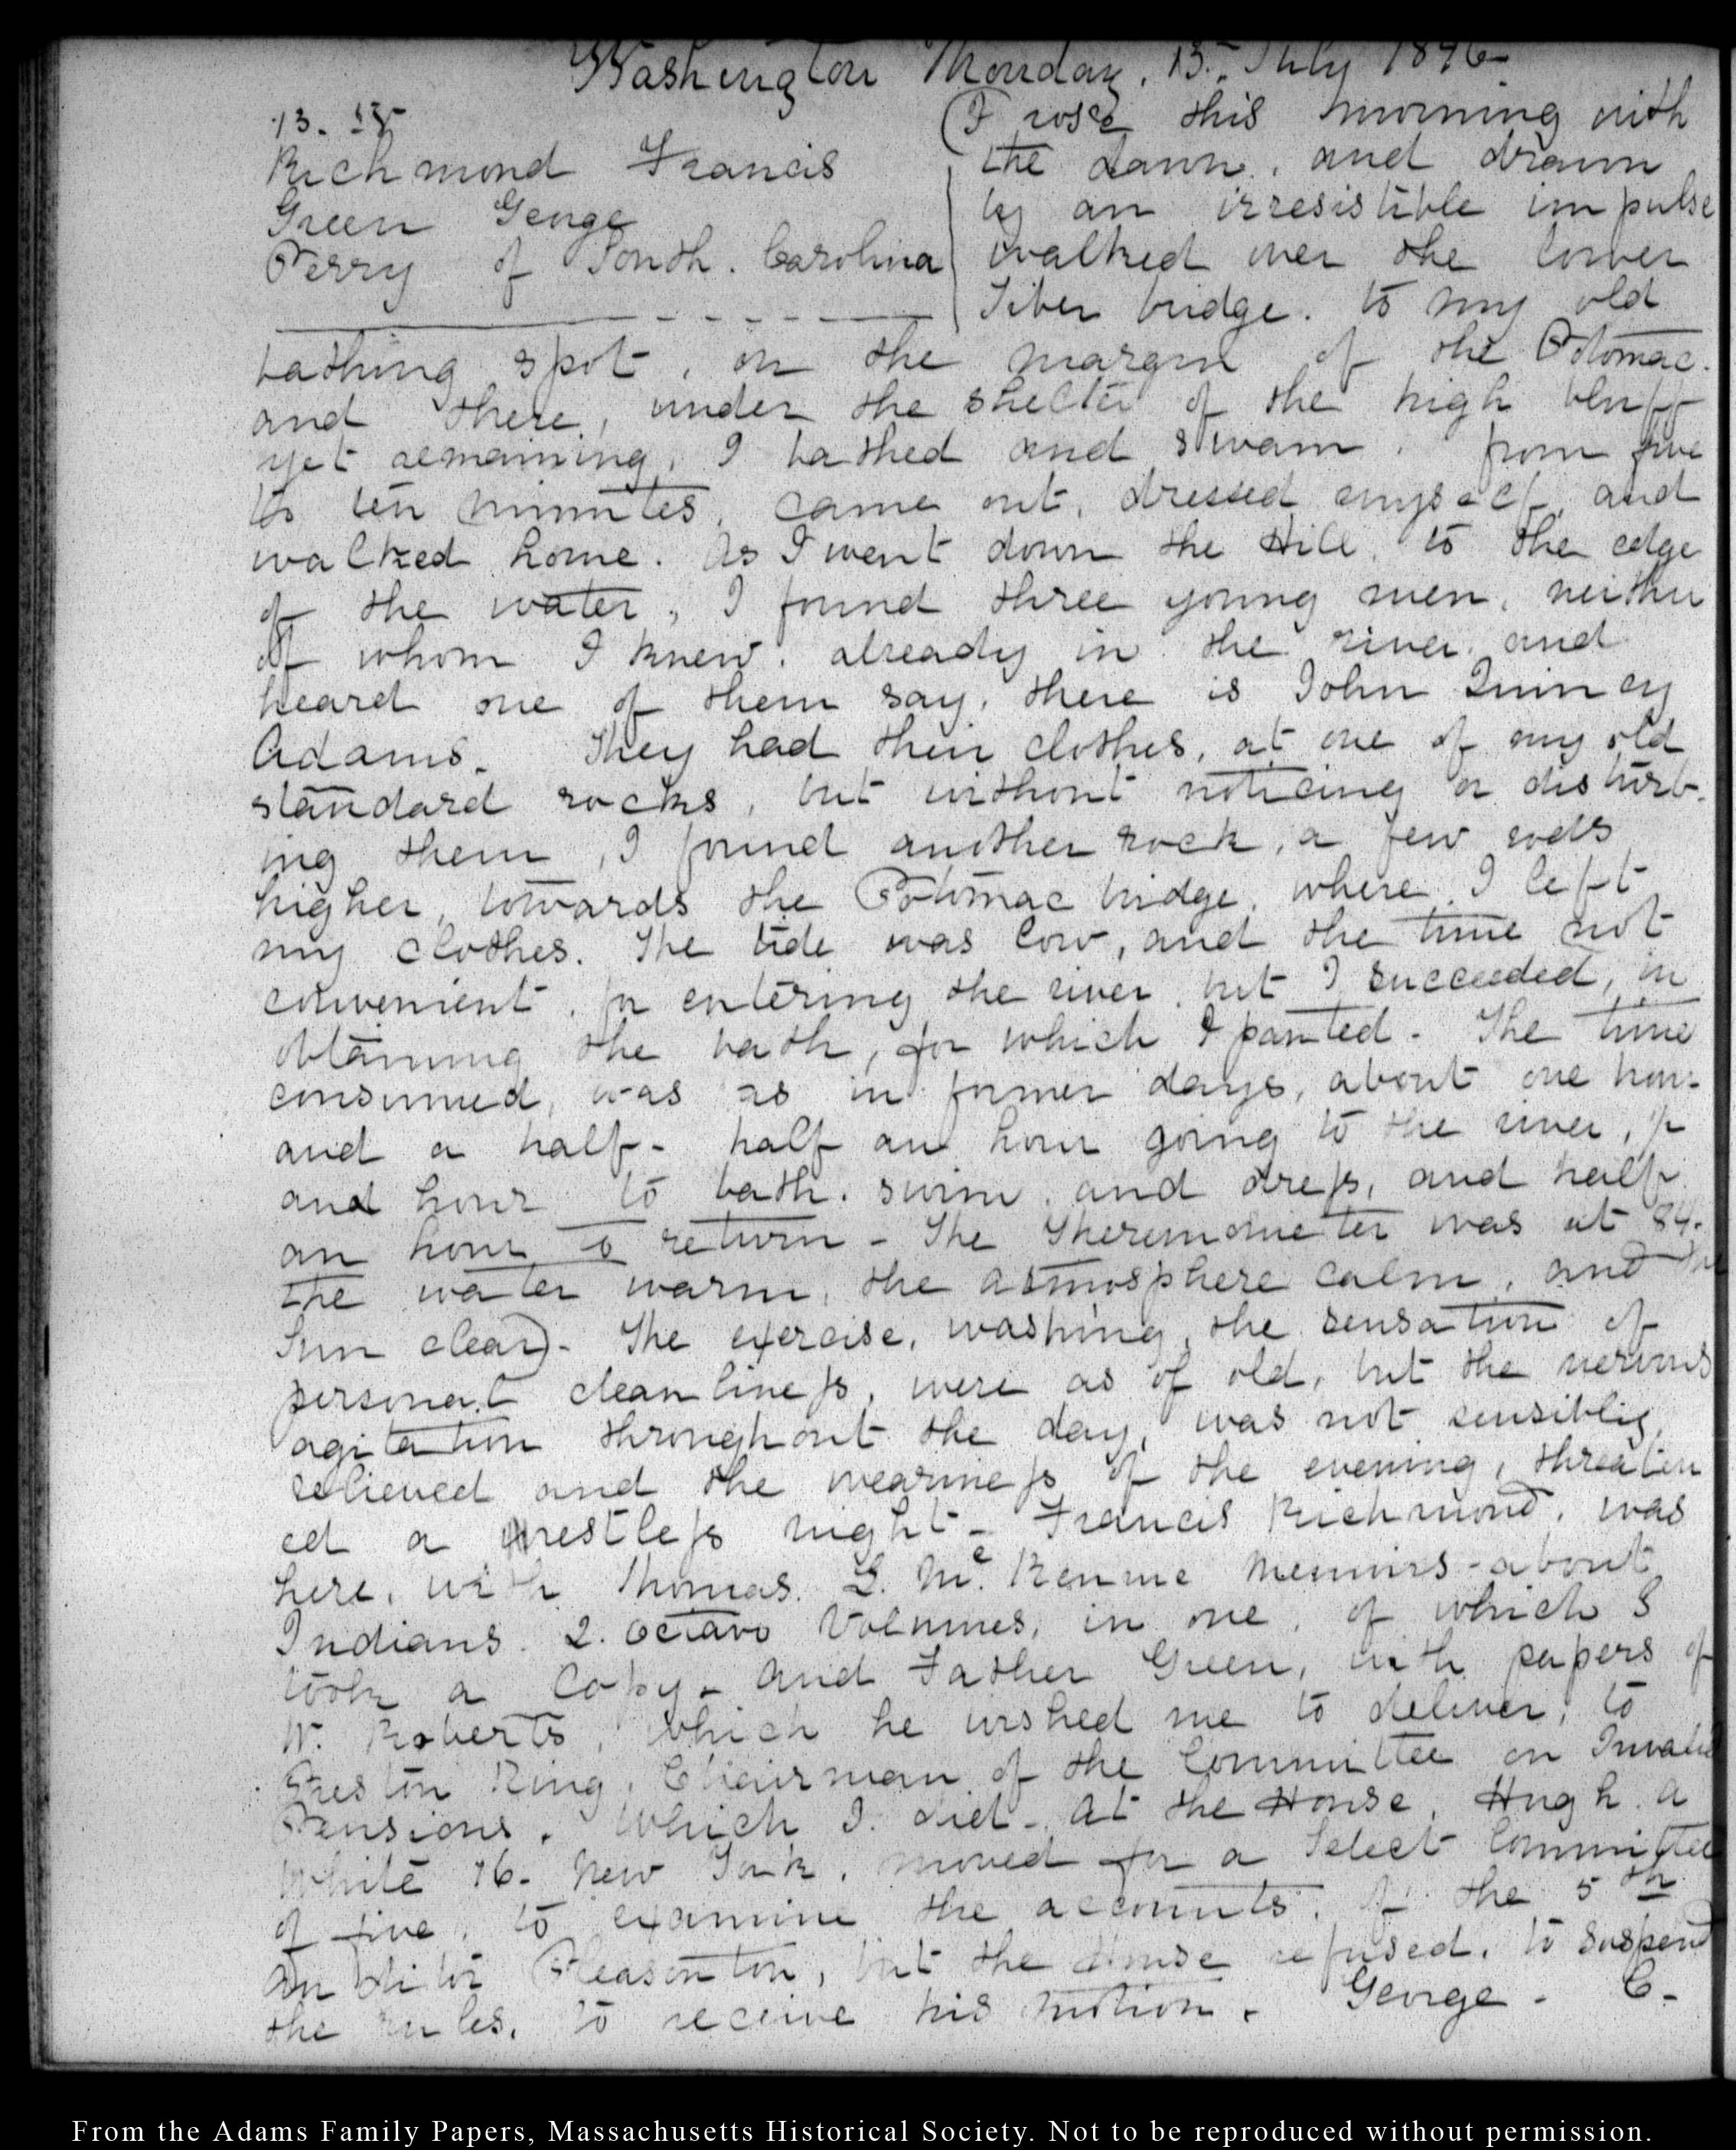 Washington Monday. 13. July 1846
13. IV
Richmond Francis
Green George
Perry of South. Carolina
I rose this morning with
the dawn, and drawn
by an irresistible impulse
walked over the lower
Tiber bridge. to my old
bathing spot, on the margin of the Potomac.
and there, under the shelter of the high bluff
yet remaining, I bathed and swam. from five
to ten minutes, came out, dressed myself, and
walked home. As I went down the Hill, to the edge
of the water, I found three young men, neither
of whom I knew. already in the river, and
heard one of them say, there is John Quincy
Adams. They had their clothes, at one of my old
standard rocks, but without noticing or disturb-
ing them, I found another rock, a few rods
higher, towards the Potomac bridge, where I left
my clothes. The tide was low, and the time not
convenient, for entering the river, but I succeeded, in
obtaining the bath, for which I panted. The time
consumed, was as in former days, about one hour
and a half- half an hour going to the river, ½
and hour to bath. swim, and dress, and half
an hour to return - The Theremometer was at 84.
the water warm, the atmosphere calm, and the
Sun clear) - The exercise, washing, the sensation of
personal cleanliness, were as of old, but the nervous
agitation throughout the day, was not sensibly
relieved and the weariness of the evening, threaten
ed a restless night - Francis Richmond, was
here, with Thomas. L. Mc. Kennie Memoirs - about
Indians. 2. octavo Volumes, in one, of which I
took a Copy - and Father Green, with papers of
W. Roberts, which he wished me to deliver, to
Preston King, Chairman of the Committee on Invalid
Pensions, which I did - At the House, Hugh. A
White 16. New York, moved for a Select Committee
of five, to examine the accounts, of the 5th
Auditor Pleasonton, but the House refused, to suspend
the rules, to receive his motion. George - C.
From the Adams Family Papers, Massachusetts Historical Society. Not to be reproduced without permission.